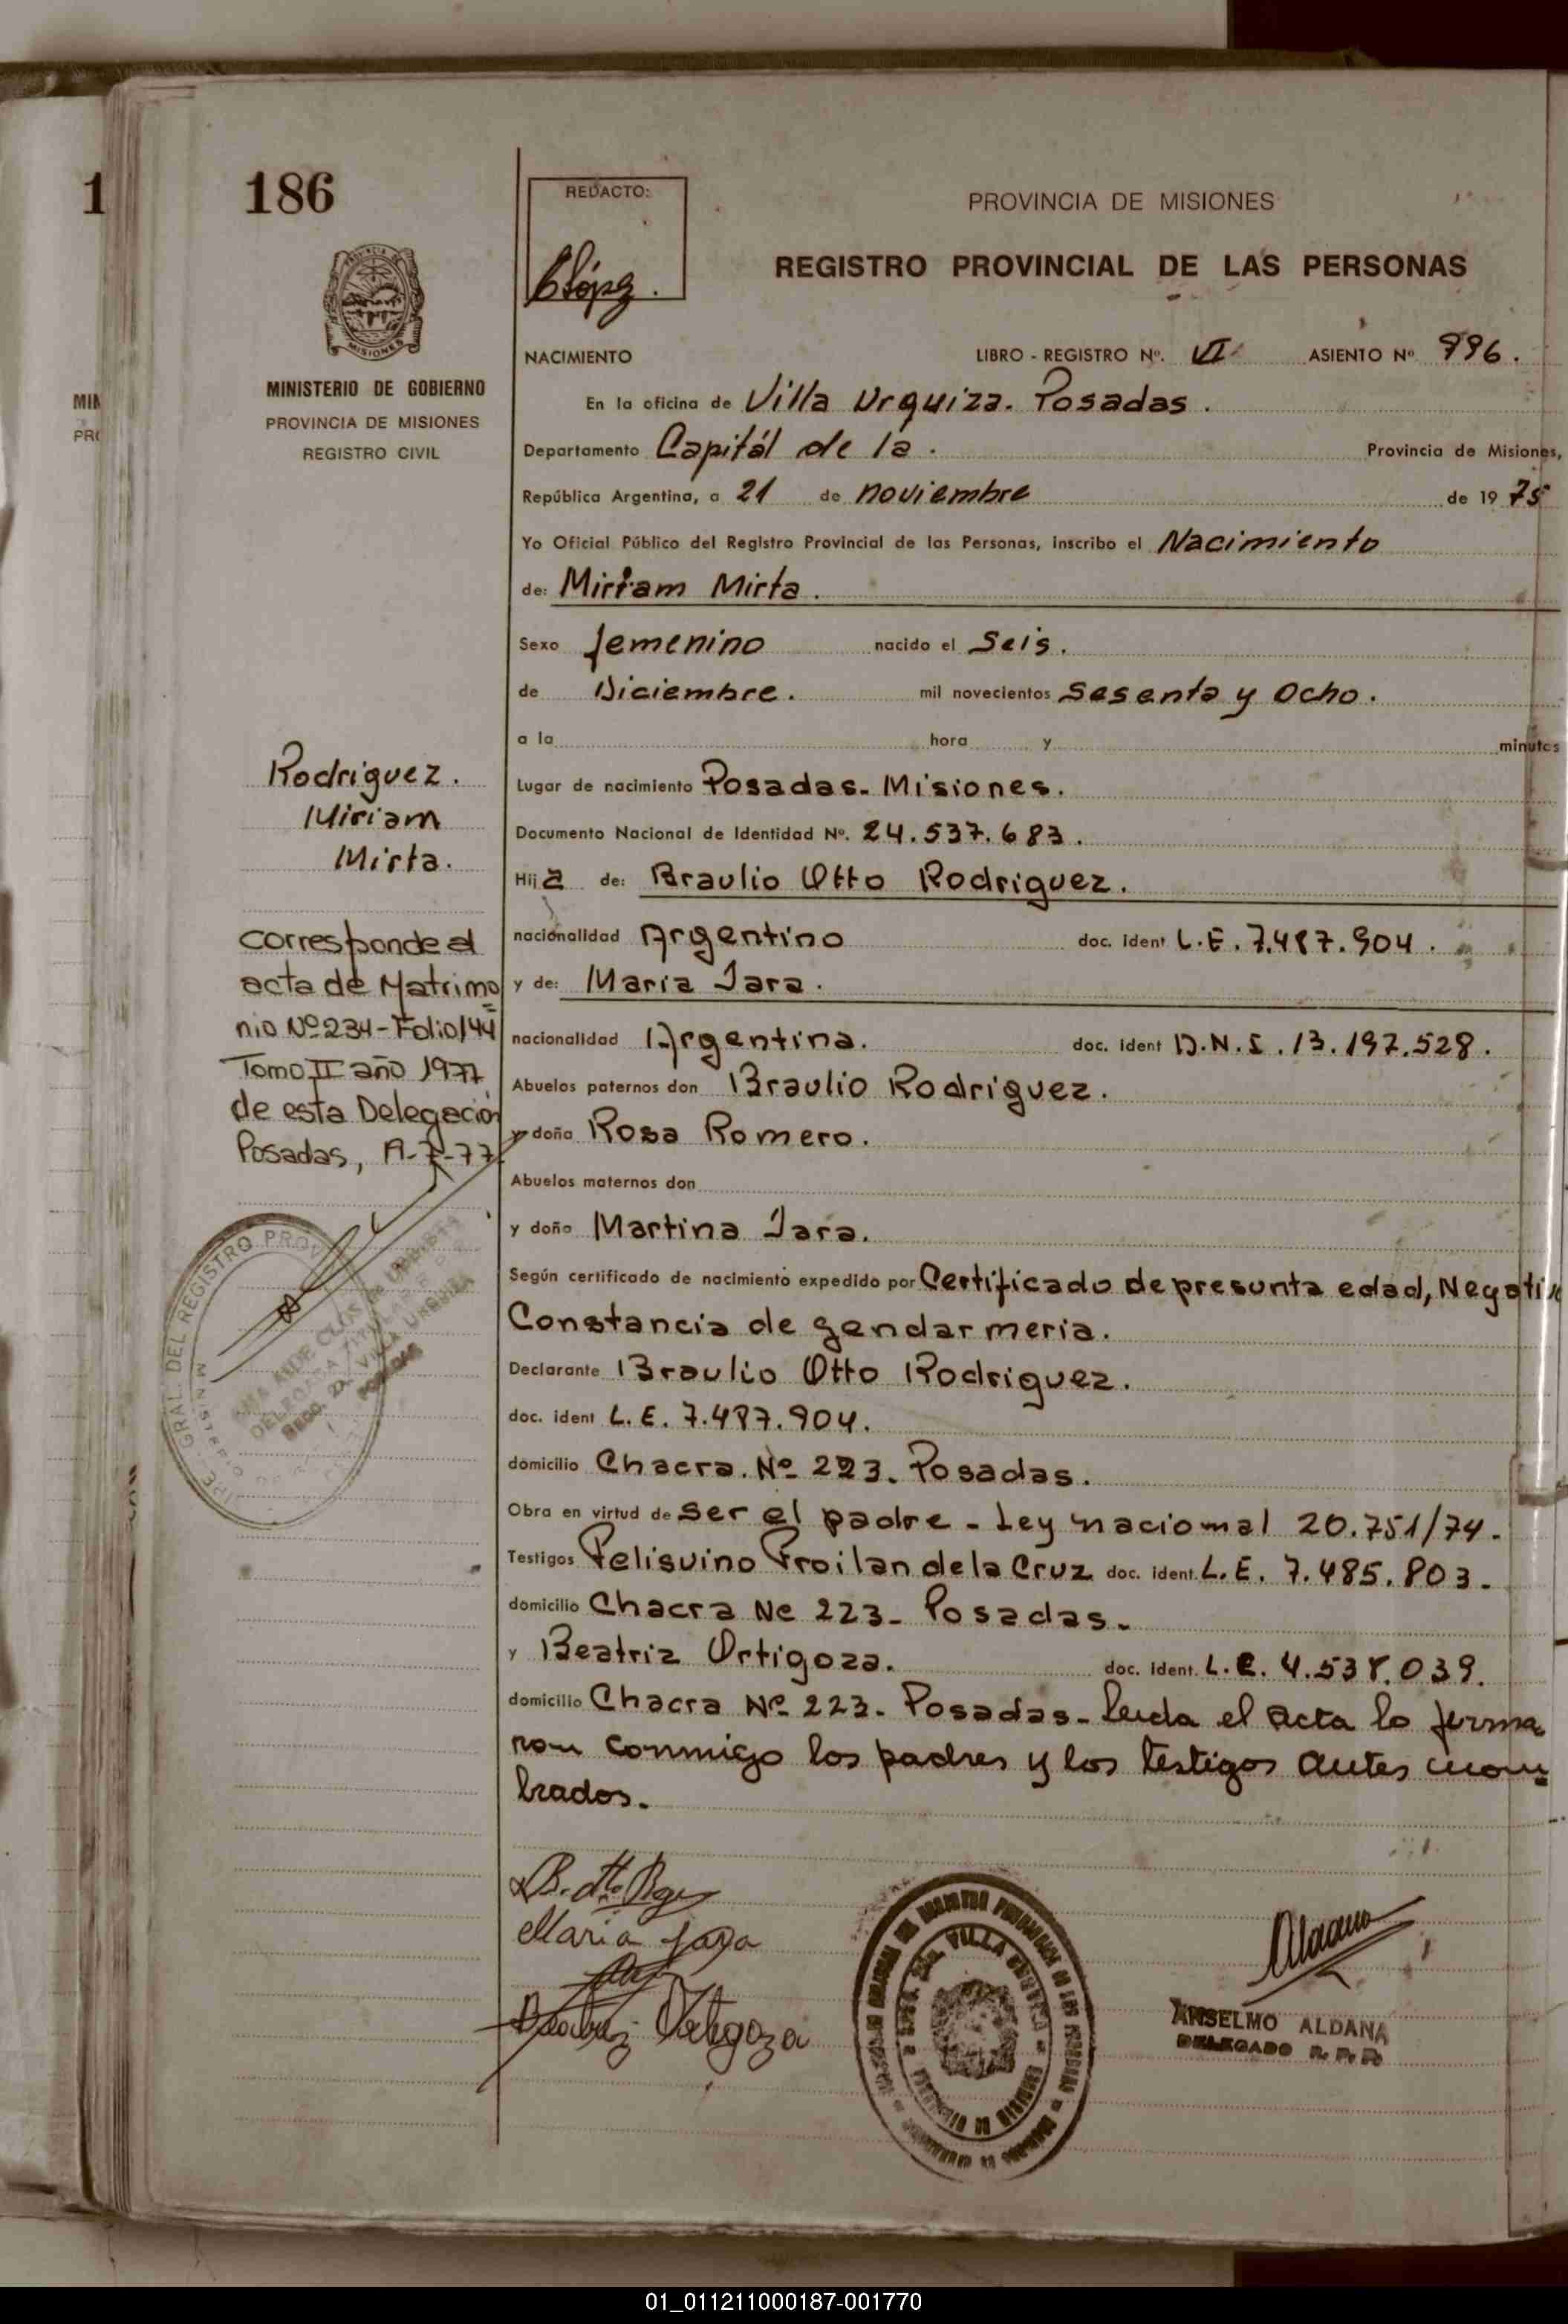 1
186
MINISTERIO DE GOBIERNO
PROVINCIA DE MISIONES
REGISTRO CIVIL
REDACTO:
PROVINCIA DE MISIONES
REGISTRO PROVINCIAL DE LAS PERSONAS
NACIMIENTO LIBRO - REGISTRO Nº. VI ASIENTO Nº 996.
En la oficina de Villa Urquiza. Posadas.
Departamento Capitál de la. Provincia de Misiones,
República Argentina, a 21 de noviembre de 1975
Yo Oficial Público del Registro Provincial de las Personas, inscribo el Nacimiento
de: Miriam Mirta.
Sexo femenino nacido el Seis.
de Diciembre. mil novecientos Sesenta y Ocho.
a la hora y minutos
Lugar de nacimiento Posadas. Misiones.
Documento Nacional de Identidad Nº. 24.537.683.
Hija de: Braulio Otto Rodriguez.
nacionalidad Argentino doc. ident L.E. 7.487.904.
y de: María Jara.
nacionalidad Argentina. doc. ident D.N.I. 13.197.528.
Abuelos paternos don Braulio Rodriguez.
y doña Rosa Romero.
Abuelos maternos don
y doña Martina Jara.
Según certificado de nacimiento expedido por Certificado de presunta edad, Negativo
Constancia de gendarmeria.
Declarante Braulio Otto Rodriguez.
doc. ident L.E. 7.487.904.
domicilio Chacra. Nº 223. Posadas.
Obra en virtud de ser el padre - Ley nacional 20.751/74.
Testigos Pelisuino Froilan de la Cruz doc. ident. L.E. 7.485.803.
domicilio Chacra Nº 223- Posadas.
y Beatriz Ortigoza. doc. ident. L.C. 4.538.039.
domicilio Chacra Nº 223- Posadas- leida el acta lo firma
ron conmigo los padres y los testigos antes nom-
brados.
Rodriguez.
Miriam
Mirta.
Corresponde al
acta de Matrimo
nio Nº 234-Folio 144
Tomo II año 1977
de esta Delegación
Posadas,
Maria Jara
Beatriz Ortigoza
ANSELMO ALDANA
DELEGADO R. P. P.
01_011211000187-001770